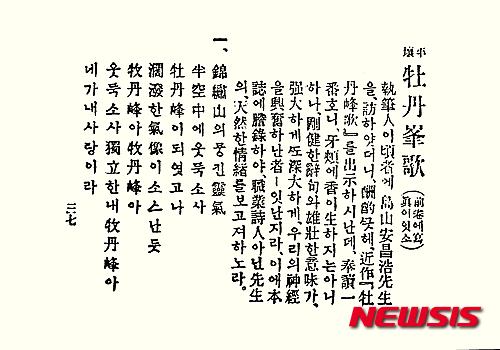 平壤
牡丹峯歌
(前卷에寫
眞이잇소)
執筆人이頃者에 島山安昌浩先生
을、訪하얏더니、酬酌씃헤、近作『牡
丹峰歌』를出示하시난데、奉讀一
番호니、牙頰에香이生하지는아니
하나、剛健한辭句와雄壯한意味가、
强大하게또深大하게、우리의神經
을興奮하난者ㅣ잇난지라、이에本
誌에謄錄하야、職業詩人아닌先生
의、天然한情緖를보고져하노라。
一、錦繡山의뭉친靈氣
半空中에웃둑소사
牡丹峰이되엿고나
濶潑한氣像이소스난듯
牧丹峰아牧丹峰아
웃둑소사獨立한내牧丹峰아
네가내사랑이라
三七
NEWSIS